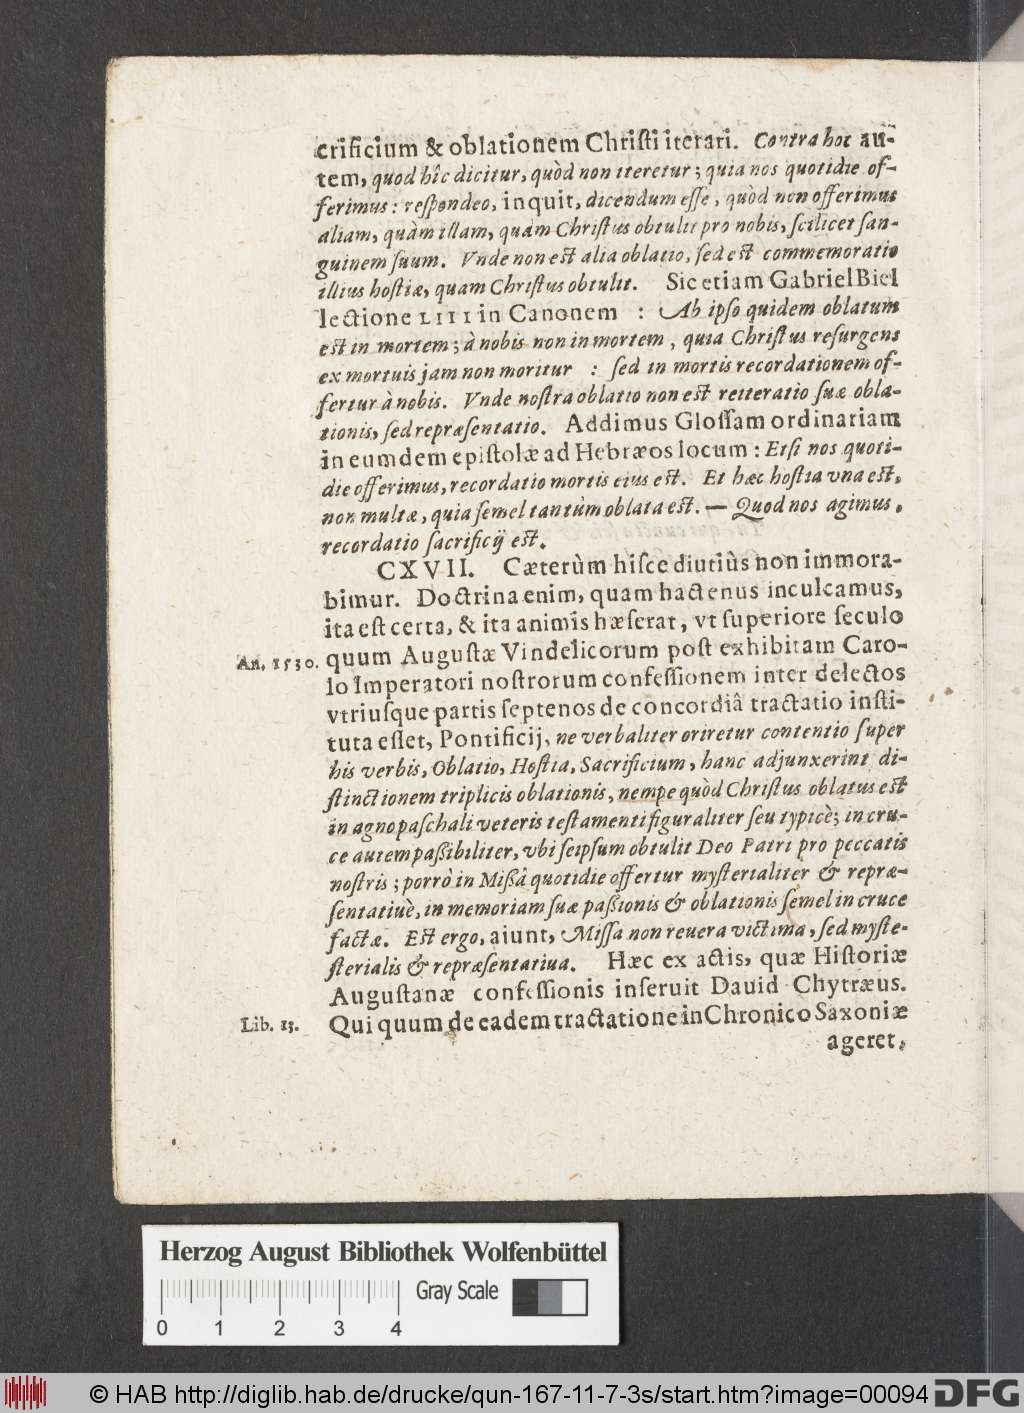 crificium & oblationem Christi iterari. Contra hoc au-
tem, quod hîc dicitur, quòd non iteretur; quia nos quotidie of-
ferimus: respondeo, inquit, dicendum esse, quòd non offerimus
aliam, quàm illam, quàm Christus obtulit pro nobis, scilicet san-
guinem suum. Vnde non est alia oblatio, sed est commemoratio
illius hostiæ, quam Christus obtulit. Sic etiam Gabriel Biel
lectione LIII in Canonem : Ab ipso quidem oblatum
est in mortem; à nobis non in mortem, quia Christus resurgens
ex mortuis jam non moritur : sed in mortis recordationem of-
fertur à nobis. Vnde nostra oblatio non est reiteratio suæ obla-
tionis, sed repræsentatio. Addimus Glossam ordinariam
in eumdem epistolæ ad Hebræos locum : Etsi nos quoti-
die offerimus, recordatio mortis eius est. Et hæc hostia vna est,
non multæ, quia semel tantùm oblata est. — Quod nos agimus,
recordatio sacrificij est.
CXVII. Cæterùm hisce diutiùs non immora-
bimur. Doctrina enim, quam hactenus inculcamus,
ita est certa, & ita animis hæserat, vt superiore seculo
An. 1530. quum Augustæ Vindelicorum post exhibitam Caro-
lo Imperatori nostrorum confessionem inter delectos
vtriusque partis septenos de concordiâ tractatio insti-
tuta esset, Pontificij, ne verbaliter oriretur contentio super
his verbis, Oblatio, Hostia, Sacrificium, hanc adjunxerint di-
stinctionem triplicis oblationis, nempe quòd Christus oblatus est
in agno paschali veteris testamenti figuraliter seu typicè; in cru-
ce autem paßibiliter, vbi seipsum obtulit Deo Patri pro peccatis
nostris; porrò in Mißâ quotidie offertur mysterialiter & repræ-
sentatiuè, in memoriam suæ paßionis & oblationis semel in cruce
factæ. Est ergo, aiunt, Missa non reuera victima, sed myste-
sterialis & repræsentatiua. Hæc ex actis, quæ Historiæ
Augustanæ confessionis inseruit Dauid Chytræus.
Lib. 13. Qui quum de eadem tractatione in Chronico Saxoniæ
ageret,
Herzog August Bibliothek Wolfenbüttel
Gray Scale
0 1 2 3 4
© HAB http://diglib.hab.de/drucke/qun-167-11-7-3s/start.htm?image=00094
DFG